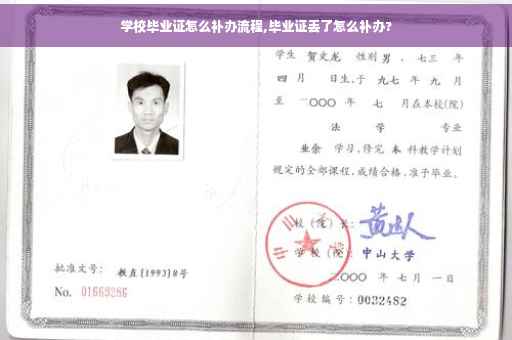 学校毕业证怎么补办流程,毕业证丢了怎么补办?
学生 贺文龙 性别 男 、七三 年
四 月 日生,于 九七 年 九 月
至 二〇〇〇 年 七 月在本校(院)
法 学 专业
业余 学习,修完 本 科教学计划
规定的全部课程,成绩合格,准予毕业。
校(院)长:
学校(院): 中山大学
二〇〇〇 年 七 月 一 日
批准文号: 教直[1993]8号
No. 01669286
学校编号: 0032482